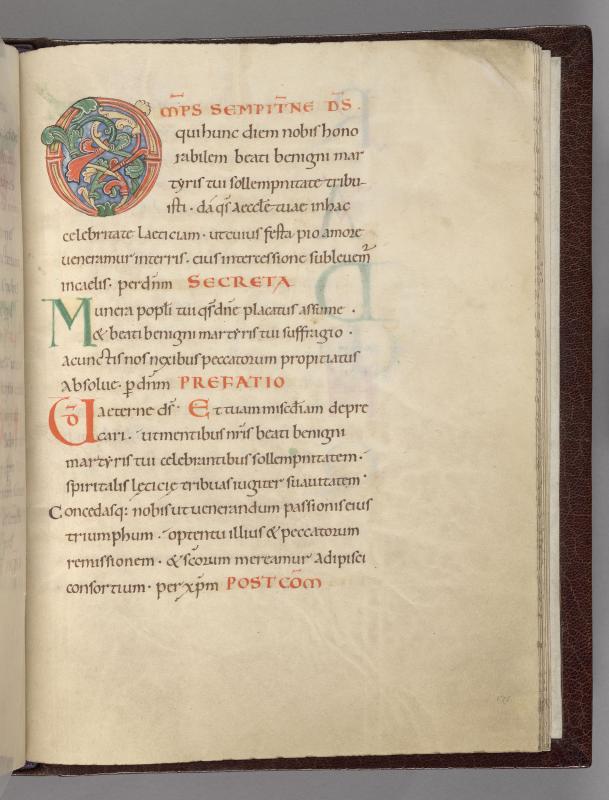 OMP̄S SEMPIT̄NE D̄S.
qui hunc diem nobis hono
rabilem beati benigni mar
tyris tui sollempnitate tribu-
isti. da q̄s aeccl̄e tuae in hac
celebritate laeticiam. ut cuius festa pio amore
veneramur in terris. eius intercessione sublevem̄
in caelis. per dn̄m SECRETA
Munera popl̄i tui q̄s dn̄e placatus assume.
& beati benigni martyris tui suffragio.
a cunctis nos nexibus peccatorum propiciatus
absolve. p̄ dn̄m PREFATIO
V̄D aeterne d̄s. Et tuam mis̄cdiam depre
cari. ut mentibus nr̄is beati benigni
martyris tui celebrantibus sollempnitatem.
spiritalis lęticię tribuas iugiter suavitatem.
Concedasq: nobis ut venerandum passionis eius
triumphum. optentu illius & peccatorum
remissionem. & sc̄orum mereamur adipisci
consortium. per xp̄m POST COM̄